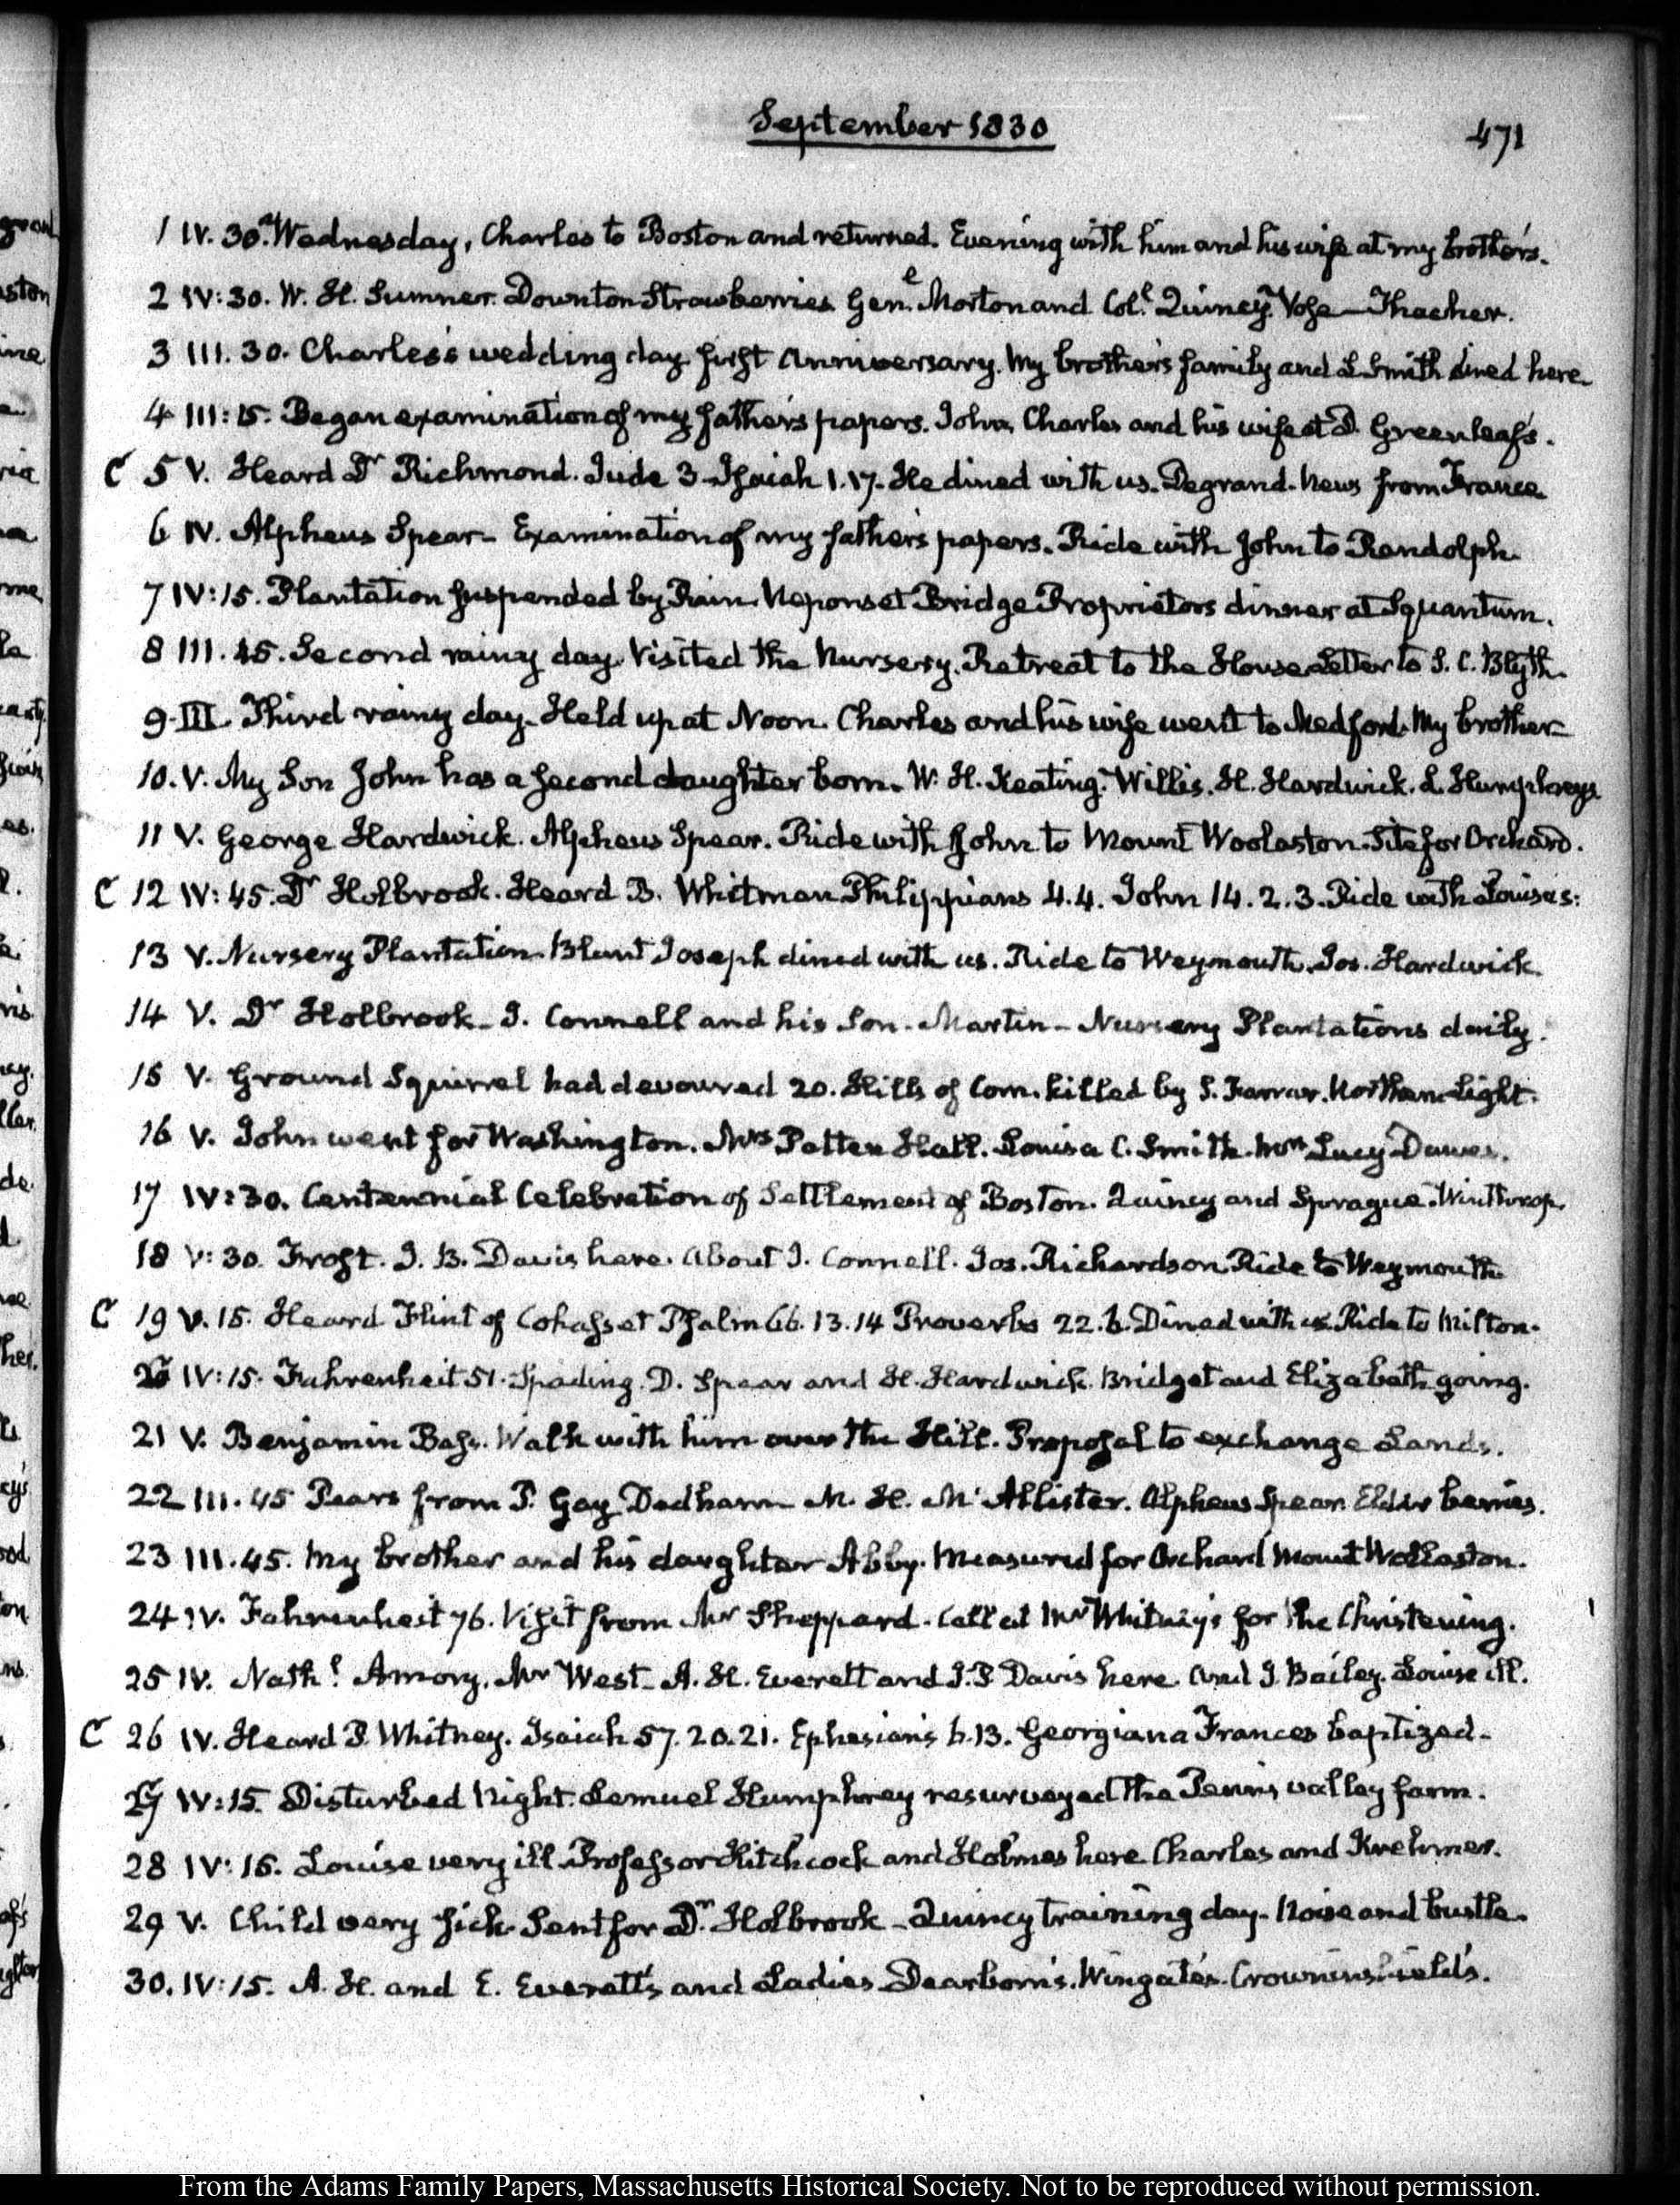 September 1830
471
1 IV. 30. Wednesday, Charles to Boston and returned. Evening with him and his wife at my brother's.
2 IV:30. W. H. Sumner. Downton Strawberries Genl Morton and Coll Quincy. Vose—Thacher.
3 III. 30. Charles's wedding day first Anniversary. My brother's family and L Smith dined here.
4 III:15. Began examination of my father's papers. John, Charles and his wife at D. Greenleaf's.
C 5 V. Heard Dr Richmond. Jude 3. Isaiah 1.17. He dined with us. Degrand. News from France.
6 IV. Alpheus Spear— Examination of my father's papers. Ride with John to Randolph.
7 IV:15. Plantation suspended by Rain. Neponset Bridge Proprietors dinner at Squantum.
8 III. 45. Second rainy day. Visited the Nursery. Retreat to the House Letter to S. C. Blyth.
9. III. Third rainy day. Held up at Noon. Charles and his wife went to Medford. My brother—
10. V. My Son John has a second daughter born. W. H. Keating. Willis. H. Hardwick. L. Humphreys
11 V. George Hardwick. Alpheus Spear. Ride with John to Mount Woolaston. Site for Orchard.
C 12 IV:45. Dr Holbrook. Heard B. Whitman Philippians 4.4. John 14. 2. 3. Ride with Louisas:
13 V. Nursery Plantation. Blunt Joseph dined with us. Ride to Weymouth. Jos. Hardwick.
14 V. Dr Holbrook— J. Connell and his Son. Martin— Nursery Plantations daily.
15 V. Ground Squirrel had devoured 20. Hills of Corn. killed by S. Farrar. Northern Light.
16 V. John went for Washington. Mrs Hall. Louisa C. Smith. Lucy Dawes.
17 IV:30. Centennial Celebration of Settlement of Boston. Quincy and Sprague. Winthrop.
18 V:30. Frost. J. B. Davis here. About J. Connell. Jos. Richardson Ride to Weymouth
C 19 V. 15. Heard Flint of Cohasset Psalm 66. 13. 14 Proverbs 22. 6. Dined with us. Ride to Milton.
20 IV:15. Fahrenheit 51. Spading. D. Spear and H. Hardwick. Bridget and Elizabeth going.
21 V. Benjamin Bass. Walk with him over the Hill. Proposal to exchange Lands.
22 III. 45 Pears from P. Gay Dedham— M. H. McAllister. Alpheus Spear. Elder berries.
23 III. 45. My brother and his daughter Abby. Measured for Orchard Mount Wollaston.
24 IV. Fahrenheit 76. Visit from Mr Sheppard. Call at Mr Whitney's for the Christening.
25 IV. Nathl Amory. Mr West— A. H. Everett and J. P Davis here and J. Bailey. Louise ill.
C 26 IV. Heard P. Whitney. Isaiah 57. 20. 21. Ephesians 6. 13. Georgiana Frances baptized.
27 IV:15. Disturbed Night. Lemuel Humphrey resurveyed the Penn's valley farm.
28 IV:15. Louise very ill. Professor Hitchcock and Holmes here Charles and Krehmer.
29 V. Child very sick. Sent for Dr Holbrook— Quincy training day. Noise and bustle.
30. IV:15. A. H. and E. Everett's and Ladies Dearborn's. Wingate's. Crowninshield's.
From the Adams Family Papers, Massachusetts Historical Society. Not to be reproduced without permission.